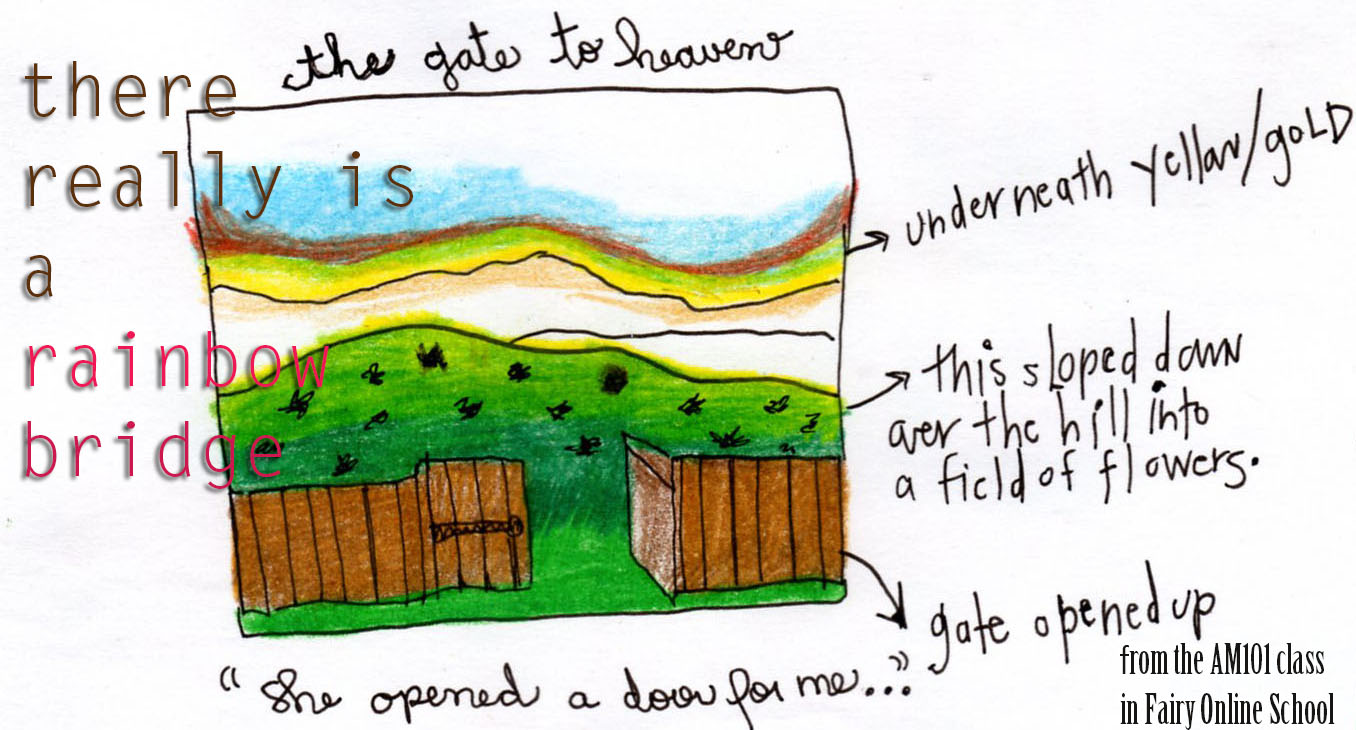 the gate to heaven
there
really is
a
rainbow
bridge
underneath yellow/goLD
this sloped down
over the hill into
a field of flowers.
gate opened up
"she opened a door for me..."
from the AM101 class
in Fairy Online School